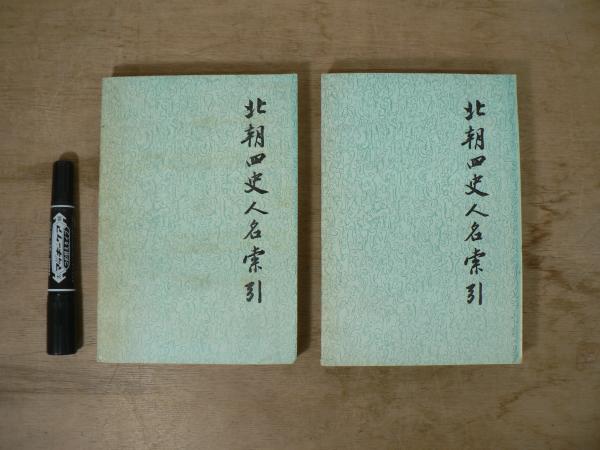 北朝四史人名索引
北朝四史人名索引
マッキー